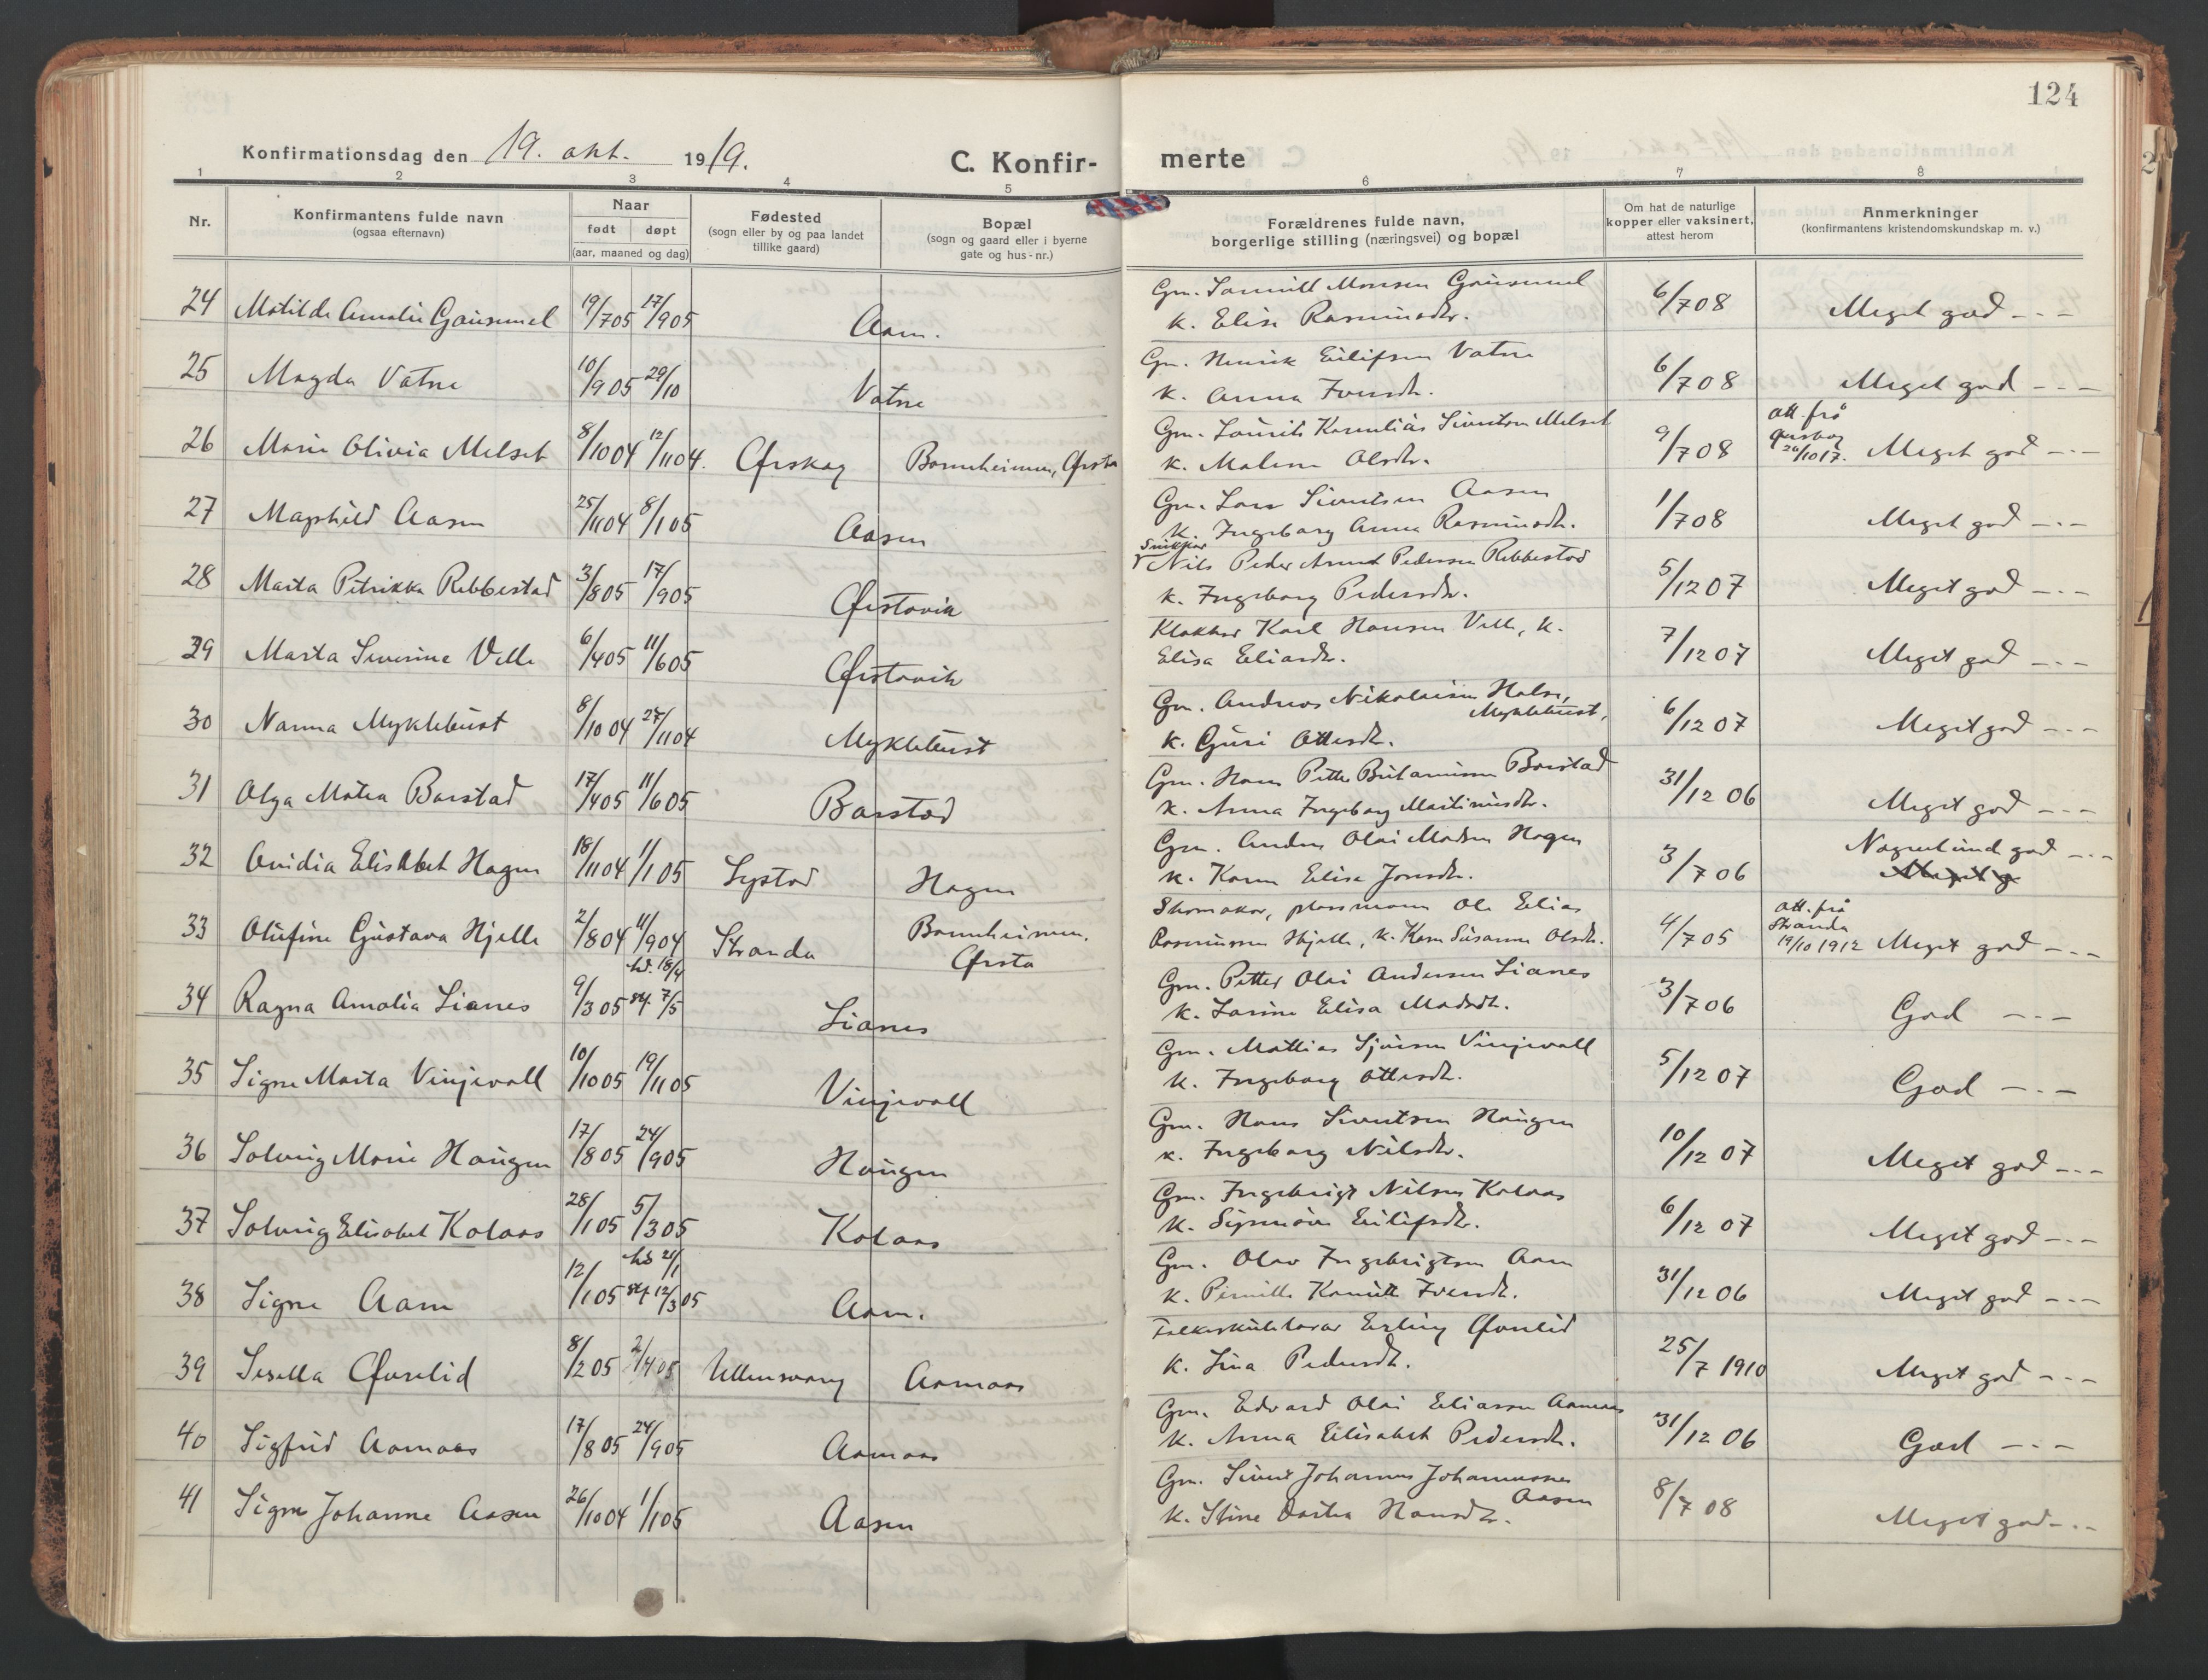 124
Konfirmationsdag den 19. okt. 1919. C. Konfirmerte
1 2 3 4 5 6 7 8
Nr.
Konfirmantens fulde navn
(ogsaa efternavn)
Naar
født døpt
(aar, maaned og dag)
Fødested
(sogn eller by og paa landet
tillike gaard)
Bopæl
(sogn og gaard eller i byerne
gate og hus-nr.)
Forældrenes fulde navn,
borgerlige stilling (næringsvei) og bopæl
Om hat de naturlige
kopper eller vaksinert,
attest herom
Anmerkninger
(konfirmantens kristendomskundskap m. v.)
Gm. Monsen
24 Matilde Amalie 19/7 05 17/9 05 Aam. K. Elise Rasmusdtr. 6/7 08 Meget god
Gm. Henrik Eilifsen Vatne
25 Magda Vatne 10/9 05 29/10 Vatne K. Anna Iversdtr. 6/7 08 Meget god
Gm. Laurits Kornelius Sivertsen Melset
26 Marie Olivia Melset 8/10 04 12/11 04. Ørskog K. Malene Olsdtr. 9/7 08 att. frå Meget god
Gm. Lars Sivertsen Aasen
27 Maghild Aasen 25/11 04 8/1 05 Aasen K. Ingeborg Anna Rasmusdtr. 1/7 08 Meget god
Snikkar
Nils Peder Pedersen Ribbestad
28 Marta Petrikka Ribbestad 3/8 05 17/9 05 Ørstavik K. Ingeborg Pedersdtr. 5/12 07 Meget god
Karl Hansen Velle, K.
29 Marta Severine Velle 6/4 05 11/6 05 Ørstavik Elisa Eliasdtr. 7/12 07 Meget god
Gm. Andreas Nikolaisen Halse,
Myklebust,
30 Nanna Myklebust 8/10 04 27/11 04 Myklebust K. Guri Ottesdtr. 6/12 07 Meget god
Gm. Hans Petter Barstad
31 Olga Matea Barstad 17/4 05 11/6 05 Barstad K. Anna Ingeborg Martinusdtr. 31/12 06 Meget god
Gm. Anders Olai Madsen Hagen
32 Ovidia Elisabet Hagen 18/11 04 1/1 05 Hagen K. Karen Elise Jonsdtr. 3/7 06 god
Skomakar, plassmann Ole Elias
33 Olufine Gustava Hjelle 2/8 04 11/9 04 Stranda Ørsta Rasmussen Hjelle, K. Karen Susanne Olsdtr. 4/7 05 att. frå Stranda 19/10 1912 Meget god
Gm. Petter Olai Andersen Lianes
34 Ragna Amalia Lianes 9/3 05 hd. 18/4 st. 7/5 Lianes K. Larine Elisa Madsdtr. 3/7 06 God
Gm. Mattias Sjursen Vinjevoll
35 Signe Marta Vinjevoll 10/10 05 19/11 05 Vinjevoll K. Ingeborg Ottesdtr. 5/12 07 God
Gm. Hans Sivertsen Haugen
36 Solveig Marie Haugen 17/8 05 24/9 05 Haugen K. Ingeborg Nilsdtr. 10/12 07 Meget god
Gm. Ingebrigt Nilsen Kolaas
37 Solveig Elisabet Kolaas 28/1 05 5/3 05 Kolaas K. Synnøve Eilifsdtr. 6/12 07 Meget god
Gm. Olav Ingebrigtsen Aam
38 Signe Aam 12/1 05 hd 21/1 st 12/3 05 Aam. K. Pernille Iversdtr. 31/12 06 Meget god
Erling Øvrelid
39 Sisella Øvrelid 8/2 05 2/4 05 Ullensvang Aamaas K. Lina Pedersdtr. 25/7 1910 Meget god
Gm. Edvard Olai Eliassen Aamaas
40 Sigfrid Aamaas 17/8 05 24/9 05 Aamaas K. Anna Elisabet Pedersdtr. 31/12 06 God
Gm. Sivert Johannes Johannessen
Aasen
41 Signe Johanne Aasen 26/10 04 1/1 05 Aasen K. Stine Hansdtr. 8/7 08 Meget god